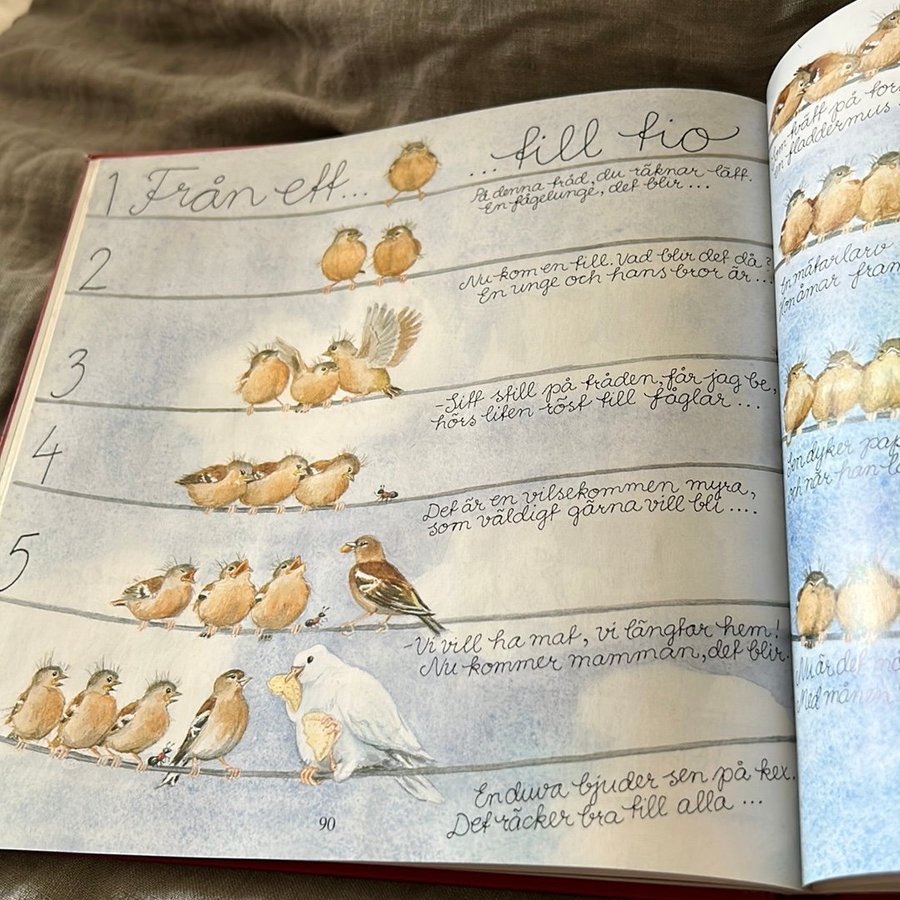 1 Från ett... ...till tio
På denna tråd, du räknar lätt.
En fågelunge, det blir...
2
Nu kom en till. Vad blir det då?
En unge och hans bror är...
3
-Sitt still på tråden, får jag be,
hörs liten röst till fåglar...
4
Det är en vilsekommen myra,
som väldigt gärna vill bli....
5
-Vi vill ha mat, vi längtar hem!
Nu kommer mamman, det blir
En duva bjuder sen på kex.
Det räcker bra till alla...
90
tvätt på
fladdermus
En mätarlarv
åmar fram
dyker
och när han
Nu är det
Med månen